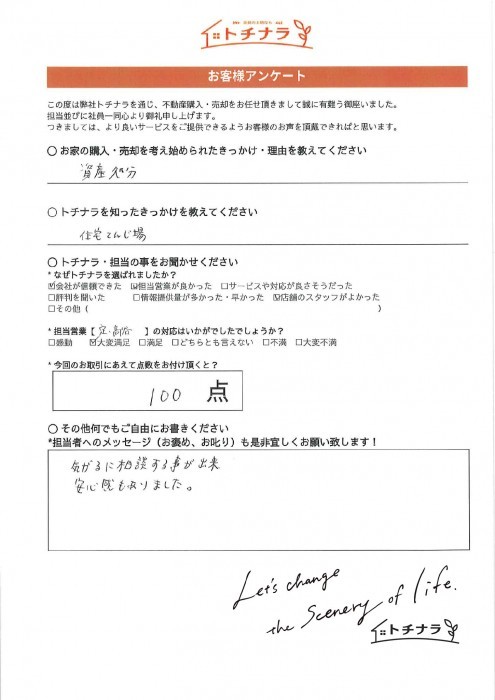 トチナラ
お客様アンケート
この度は弊社トチナラを通じ、不動産購入・売却をお任せ頂きまして誠に有難う御座いました。
担当並びに社員一同心より御礼申し上げます。
つきましては、より良いサービスをご提供できるようお客様のお声を頂戴できればと思います。
〇 お家の購入・売却を考え始められたきっかけ・理由を教えてください
資産処分
〇 トチナラを知ったきっかけを教えてください
住宅てんじ場
〇 トチナラ・担当の事をお聞かせください
* なぜトチナラを選ばれましたか？
☑会社が信頼できた ☑担当営業が良かった □サービスや対応が良さそうだった
□評判を聞いた □情報提供量が多かった・早かった ☑店舗のスタッフがよかった
□その他（ ）
* 担当営業【 】の対応はいかがでしたでしょうか？
□感動 ☑大変満足 □満足 □どちらとも言えない □不満 □大変不満
* 今回のお取引にあえて点数をお付け頂くと？
100 点
〇 その他何でもご自由にお書きください
*担当者へのメッセージ（お褒め、お叱り）も是非宜しくお願い致します！
気がるに相談する事が出来
安心感も有りました。
Let's change
the Scenery of life.
トチナラ